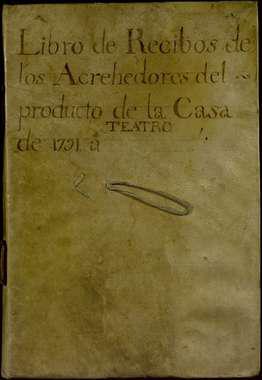 Libro de Recibos de
los Acrehedores del
producto de la Casa
TEATRO
de 1791 à